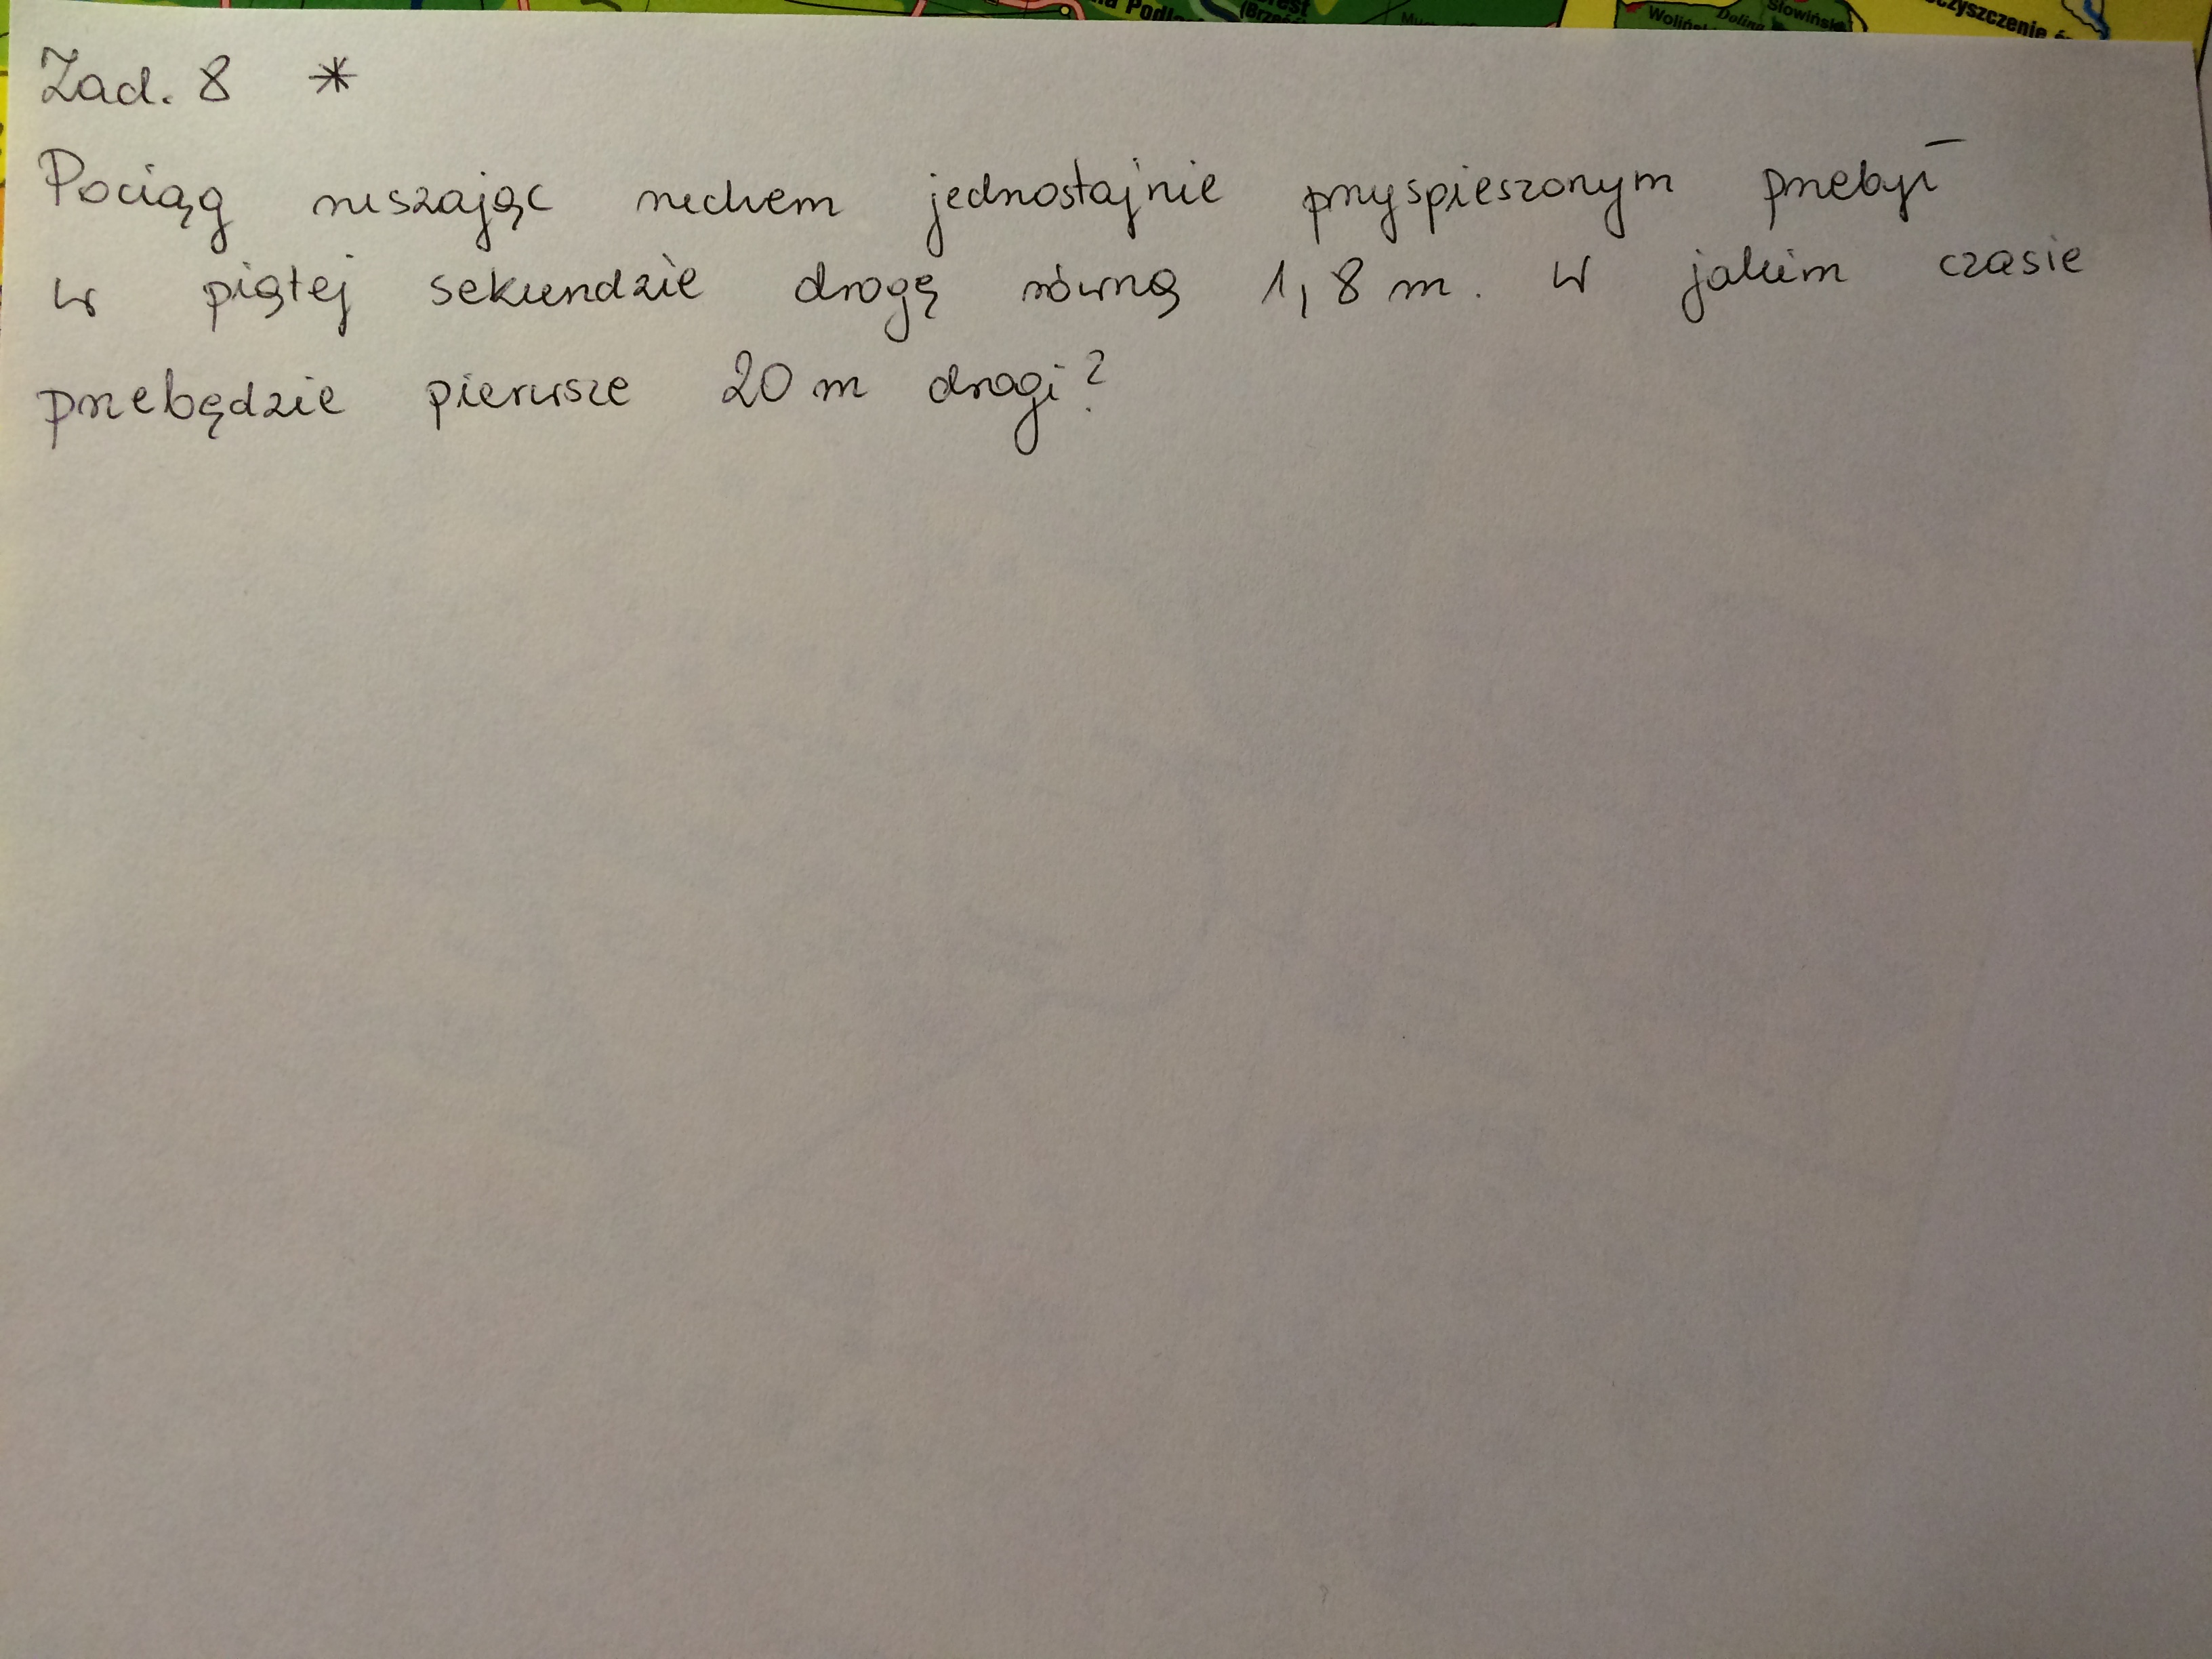 rest
na Podla
(Brześć
Woliński
Dolina
Słowiński
oczyszczenie
Zad. 8 *
Pociąg ruszając ruchem jednostajnie przyspieszonym przebył
w piątej sekundzie drogę równą 1,8 m. W jakim czasie
przebędzie pierwsze 20 m drogi?